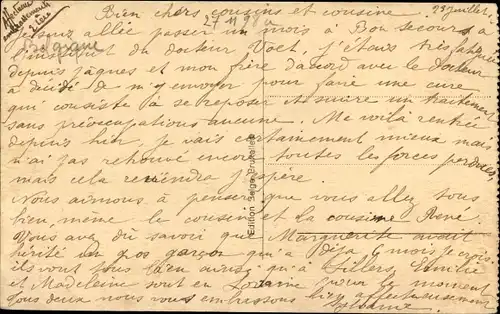 Bien chers cousins et cousine. 23 Juillet.
27 11 98
je suis allée passer un mois à Bon secours à
du docteur Voet, j'étais très
depuis pâques et mon frère d'accord avec le docteur
a décidé de m'y envoyer pour faire une cure
qui consiste à se reposer suivre un traitement
sans préoccupations aucune. Me voilà rentrée
depuis hier, je vais certainement mieux mais
n'ai pas retrouvé encore toutes les forces perdues,
mais cela reviendra j'espère
Nous aimons à penser que vous allez tous
bien, même la cousine et la cousine René.
Vous avez dû savoir que Marguerite avait
hérité un gros garçon qui a déjà 6 mois je crois.
ils vont tous bien ainsi qu'à Tillers, Emilie
et Madeleine sont en Lorraine pour le moment
Tous deux nous vous embrassons bien affectueusement
Edition Belge, Bruxelles